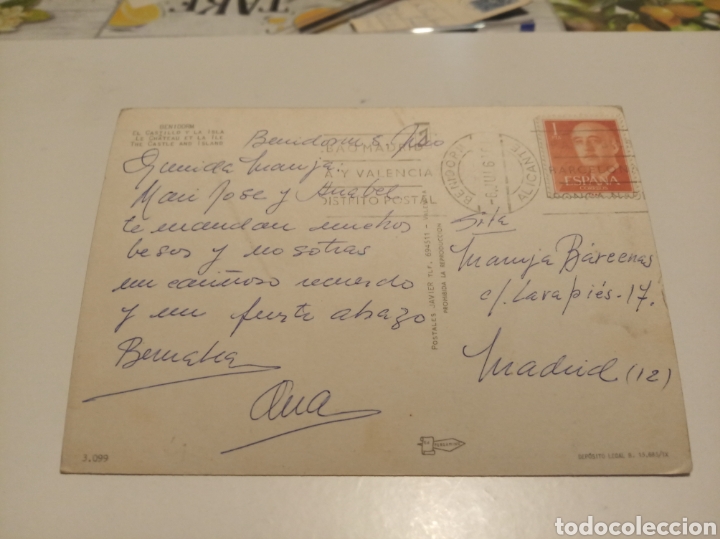 TAKE
BENIDORM
EL CASTILLO Y LA ISLA
LE CHÂTEAU ET LA ÎLE
THE CASTLE AND ISLAND
Benidorm 8 Julio
Querida Maruja:
Mari Jose y Anabel
te mandan muchos
besos y nosotras
un cariñoso recuerdo
y un fuerte abazo
Ana
3.099
A Y VALENCIA
DISTRITO POSTAL
BENIDORM
ALICANTE
1
ESPAÑA
POSTALES JAVIER TLF.
PROHIBIDA LA REPRODUCCION
Srta
Maruja Bárcenas
c/. Lavapiés-17.
Madrid (12)
DEPÓSITO LEGAL
todocoleccion